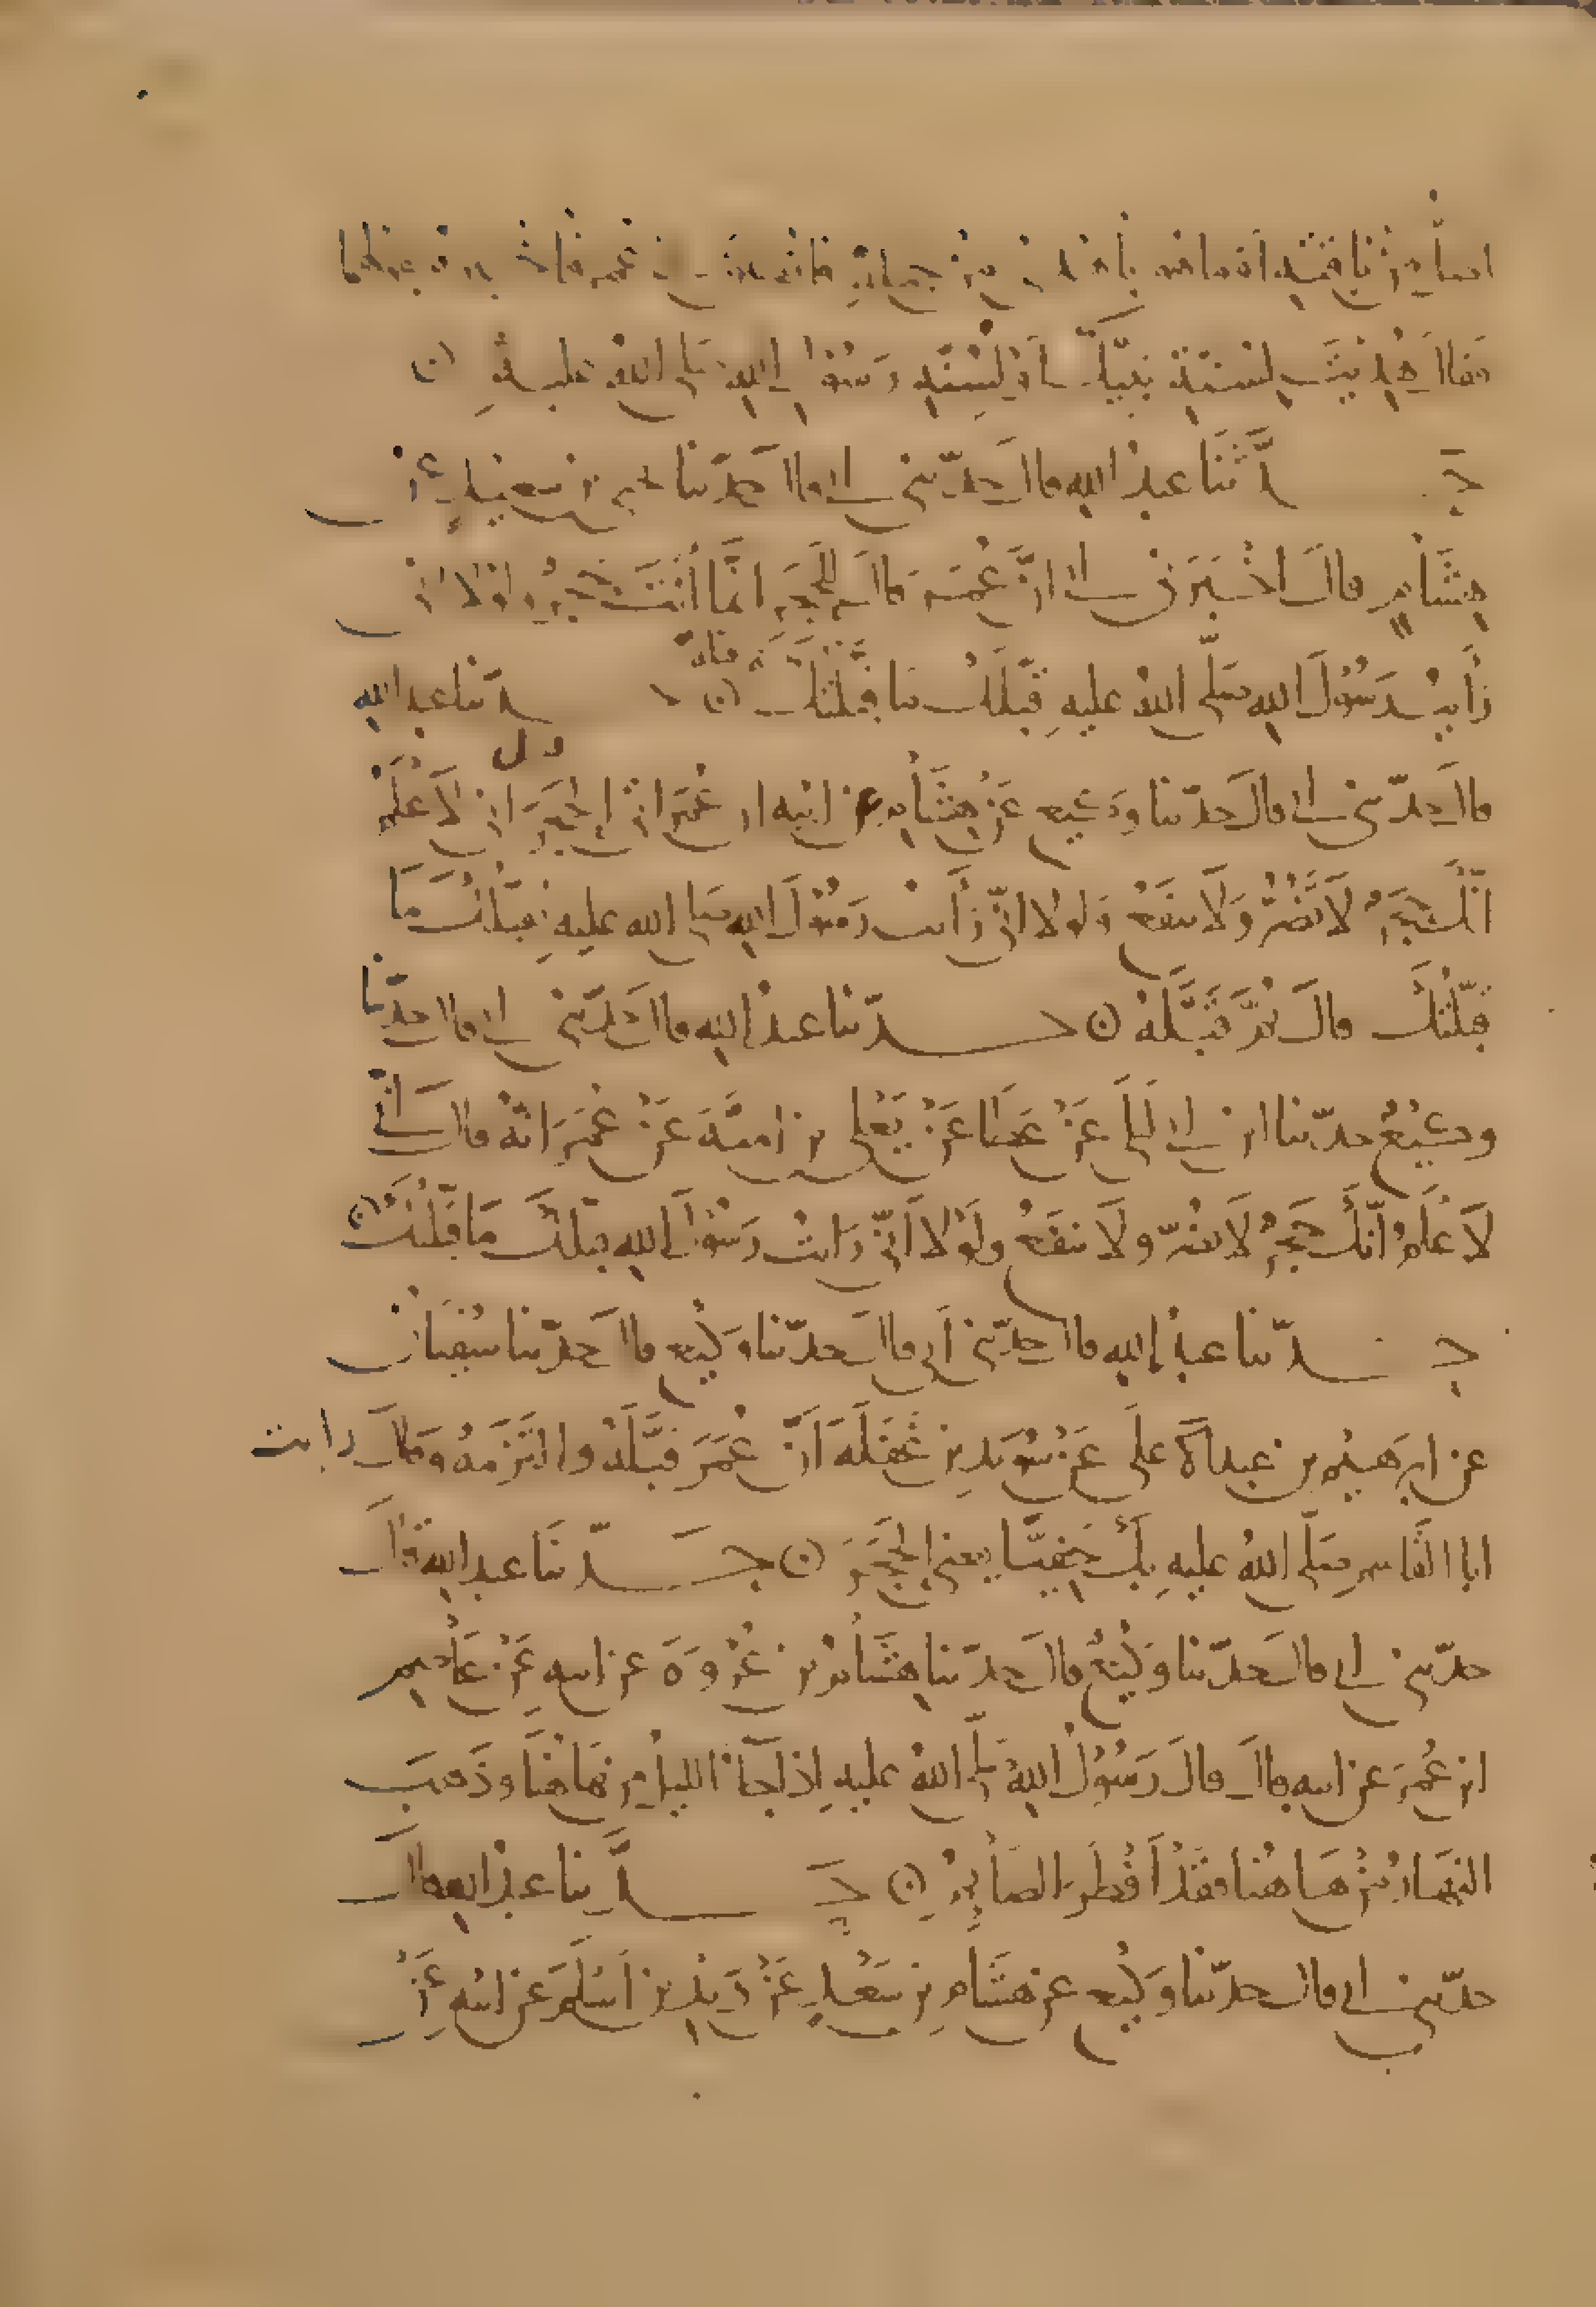 اضل من ناقتيه او ما هو باهدى من جمله فانطلقت الى عمر فاخبرته بقولهما
فقال هديت لسنة نبيك او لسنة رسول الله صلى الله عليه ن
حدثنا عبد الله قال حدثني ابي قال حدثنا يحيى بن سعيد عن
هشام قال اخبرني ابي ان عمر قال للحجر انما انت حجر ولولا اني
رأيت رسول الله صلى الله عليه قبلك ما قبلتك ثم قبله ن حدثنا عبد الله
قال حدثني ابي قال حدثنا وكيع عن هشام عن ابيه ان عمر اتى الحجر اني لاعلم
انك حجر لا تضر ولا تنفع ولولا اني رأيت رسول الله صلى الله عليه يقبلك ما
قبلتك قال ثم قبله ن حدثنا عبد الله قال حدثني ابي قال حدثنا
وكيع حدثنا ابن ابي ليلى عن عطا عن يعلى بن امية عن عمر انه قال اني
لاعلم انك حجر لا تضر ولا تنفع ولولا اني رايت رسول الله قبلك ما قبلتك ن
حدثنا عبد الله قال حدثني ابي قال حدثنا وكيع قال حدثنا سفيان
عن ابرهيم بن عبد الاعلى عن سويد بن غفلة ان عمر قبله والتزمه وقال رايت
ابا القاسم صلى الله عليه بك حفيا يعني الحجر ن حدثنا عبد الله قال
حدثني ابي قال حدثنا وكيع قال حدثنا هشام بن عروة عن ابيه عن عاصم
ابن عمر عن ابيه قال قال رسول الله صلى الله عليه اذا جا الليل من هاهنا وذهب
النهار من هاهنا فقد افطر الصايم ن حدثنا عبد الله قال
حدثني ابي قال حدثنا وكيع عن هشام بن سعد عن زيد بن اسلم عن ابيه عن